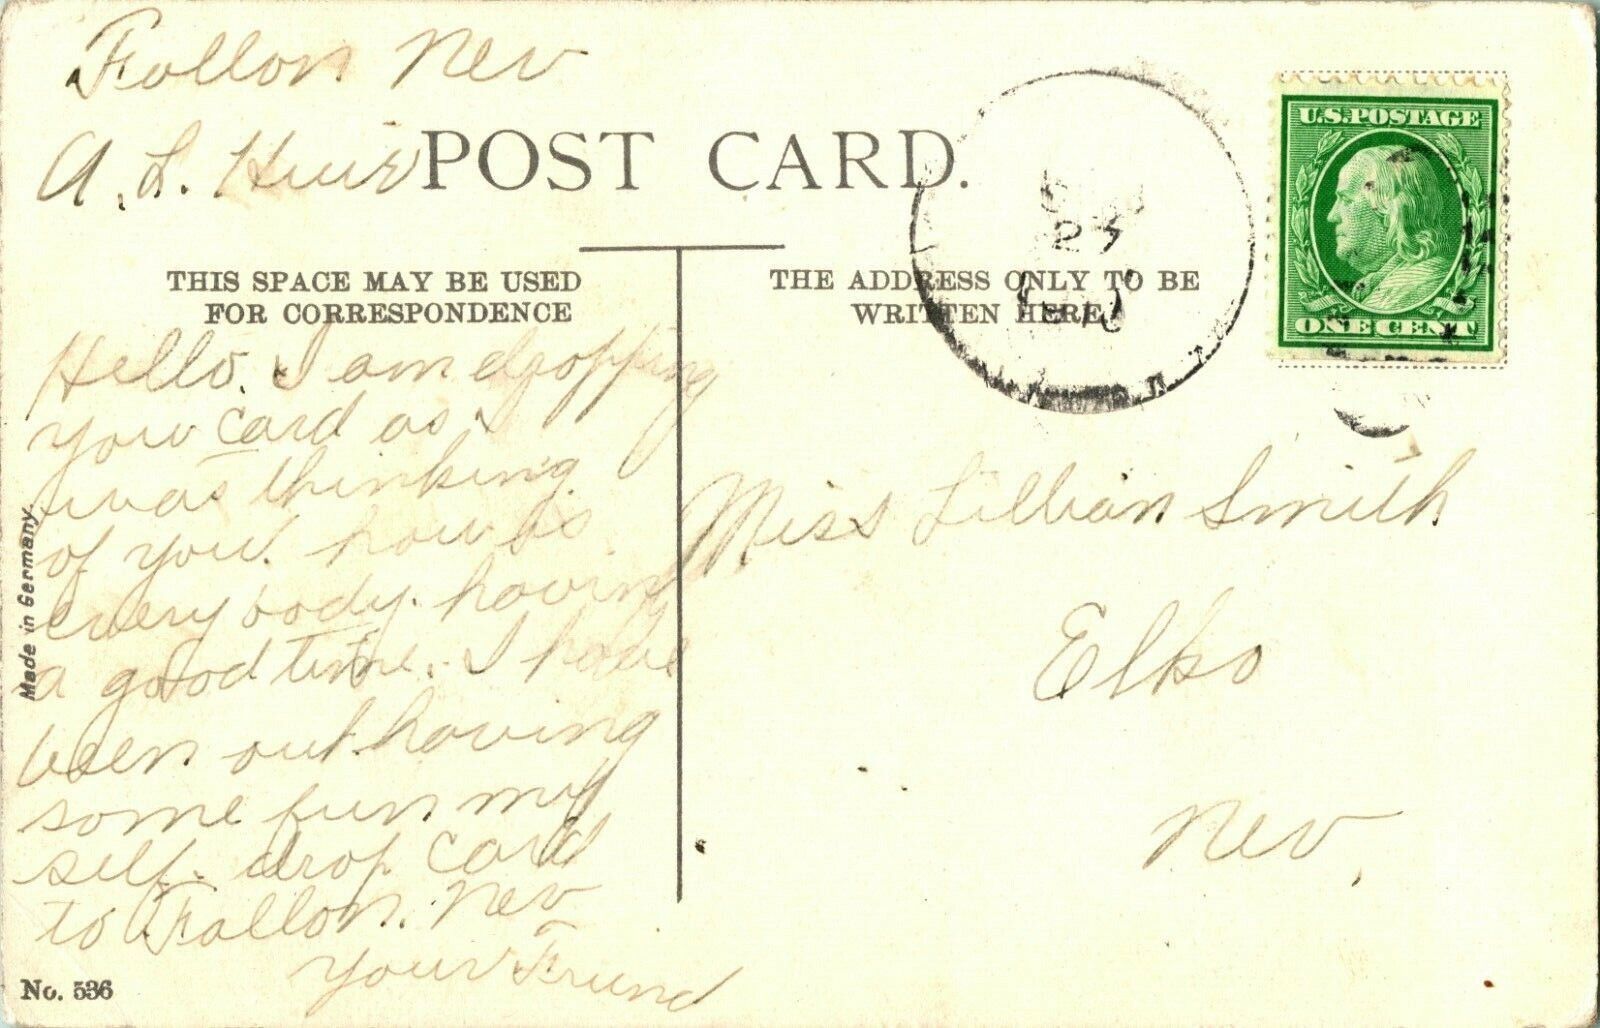 Fallon Nev
A. L.
POST CARD.
THIS SPACE MAY BE USED
FOR CORRESPONDENCE
THE ADDRESS ONLY TO BE
WRITTEN HERE
U.S. POSTAGE
ONE CENT
23
Hello. I am dropping
your card as I
was thinking
of you. how is
every body. having
a good time. I have
been out having
some fun my
self. drop card
to Fallon. Nev
your Friend
Miss Lillian Smith
Elko
Nev,
Made in Germany.
No. 536